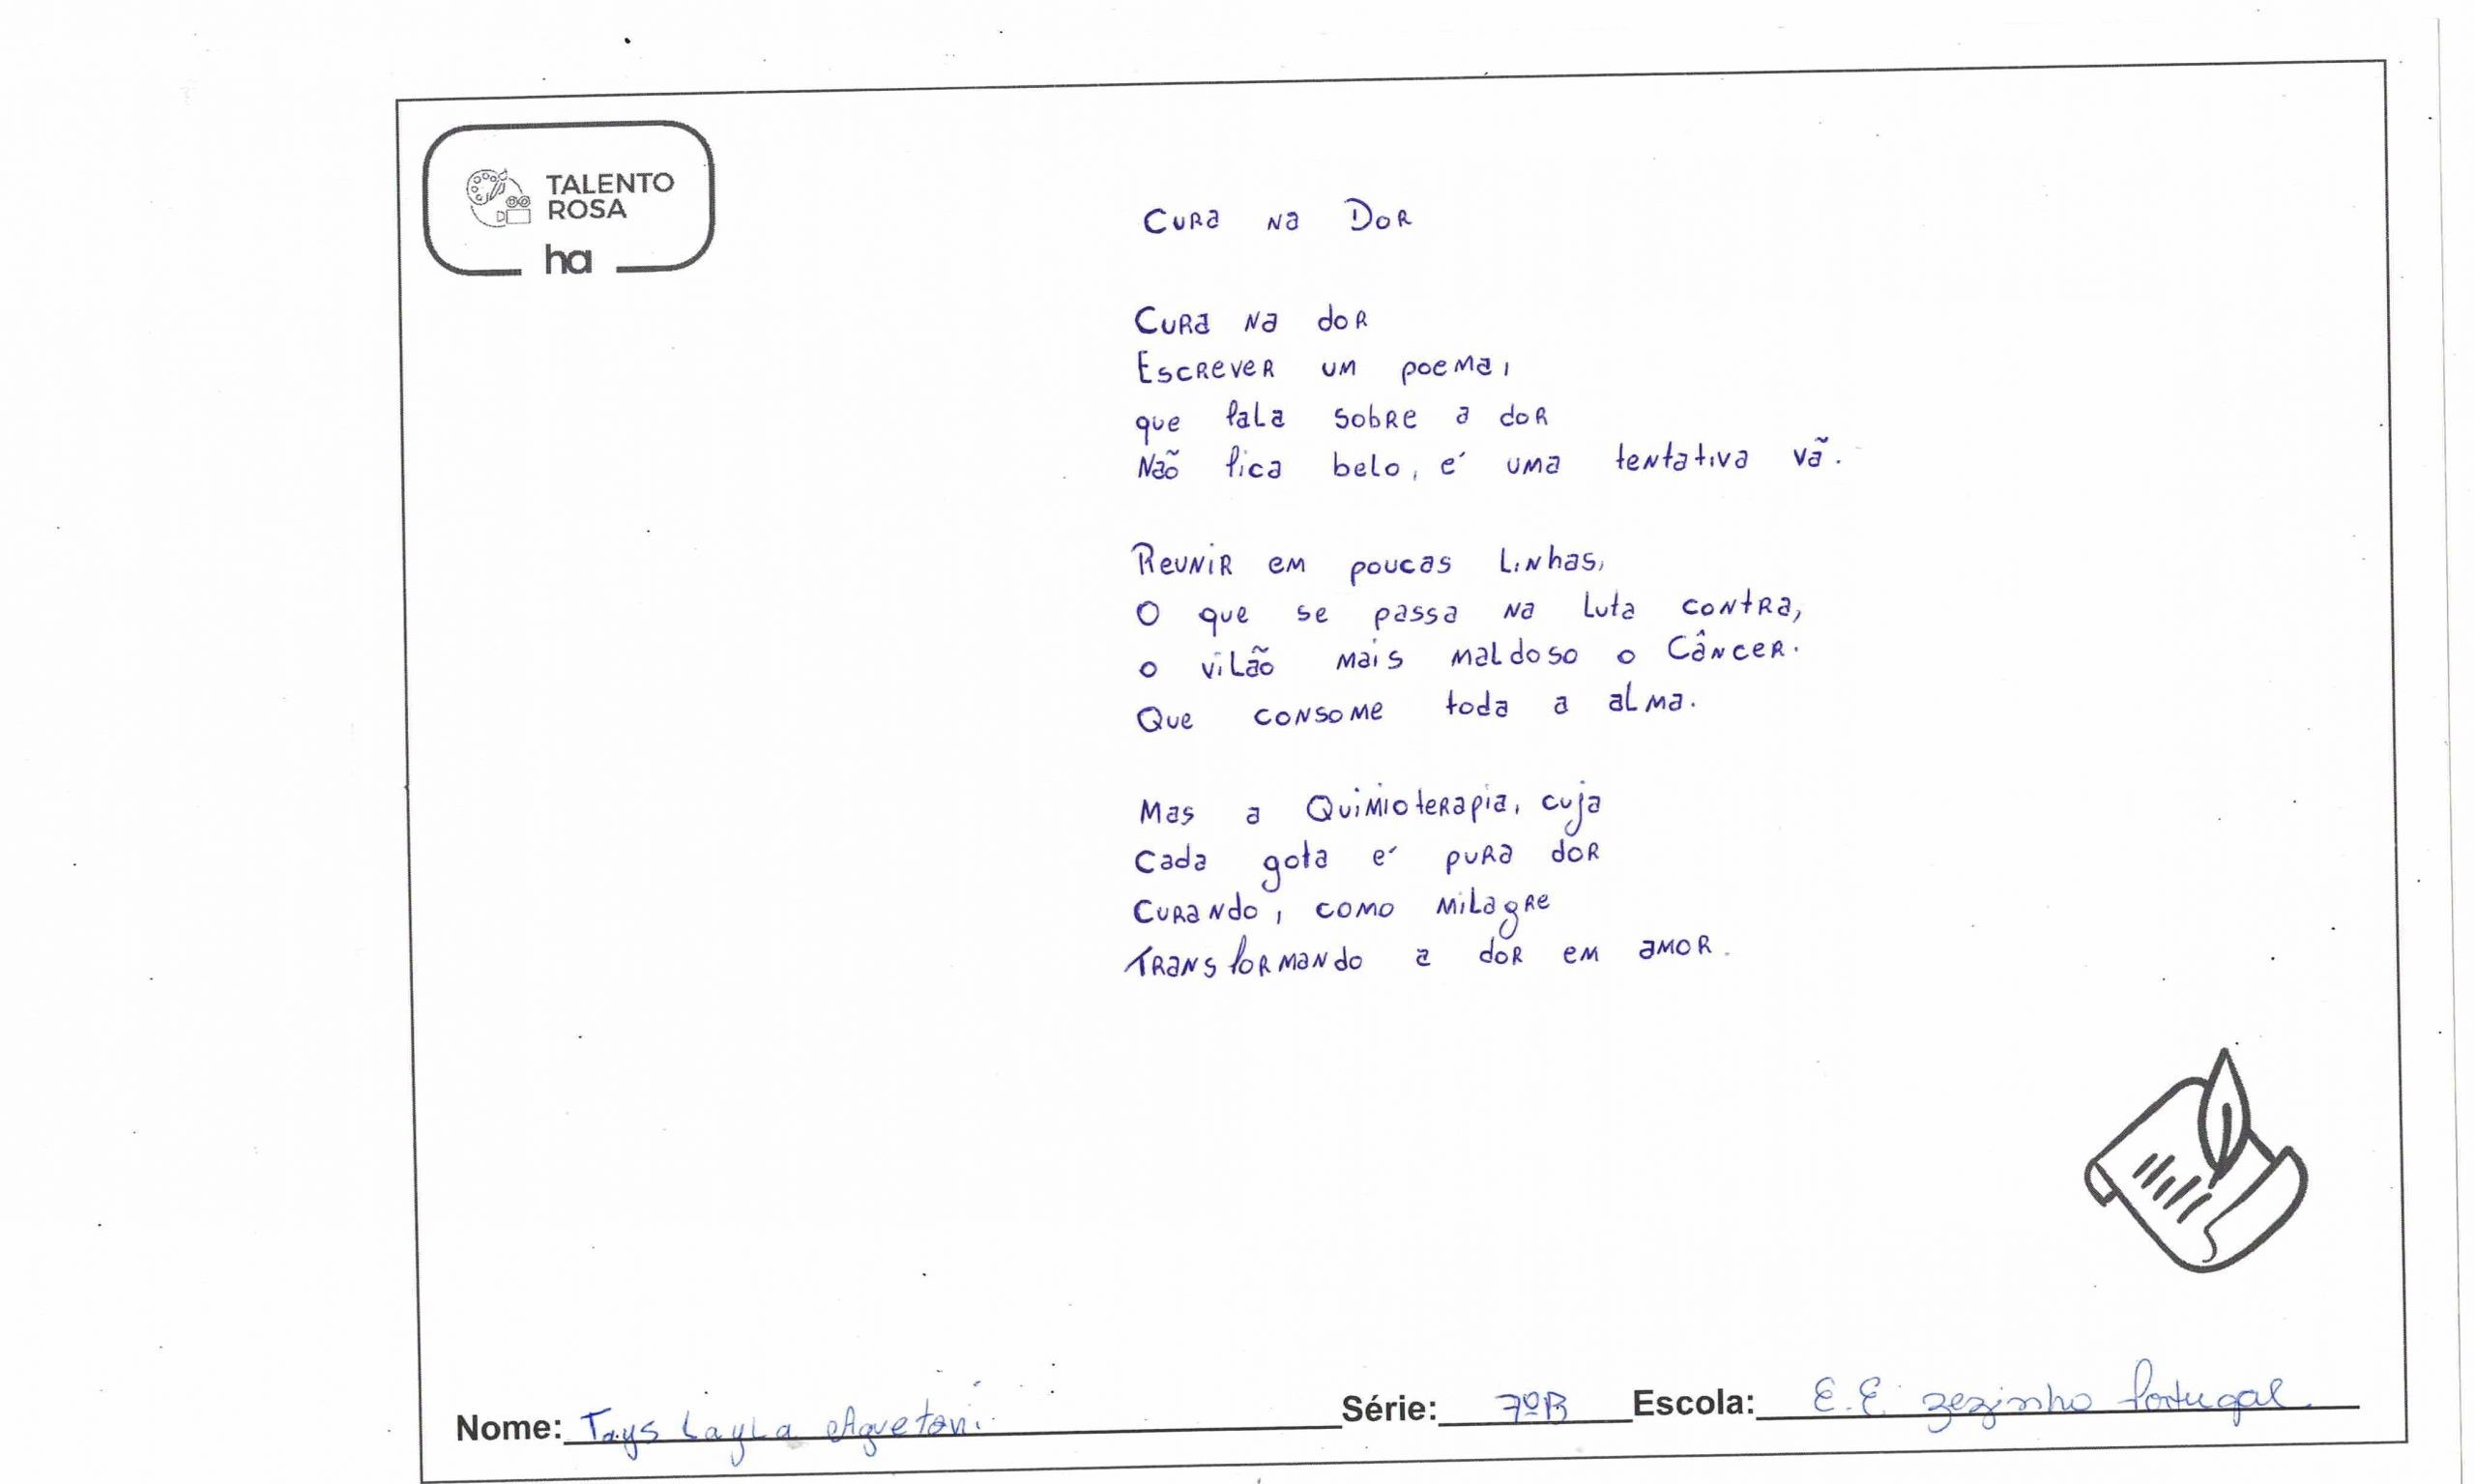 TALENTO
ROSA
ha
Cura na Dor
Cura na dor
Escrever um poema,
que fala sobre a dor
Não fica belo, é uma tentativa vã.
Reunir em poucas linhas,
O que se passa na luta contra,
o vilão mais maldoso o Câncer.
Que consome toda a alma.
Mas a Quimioterapia, cuja
Cada gota é pura dor
Curando, como milagre
Transformando a dor em amor.
Nome: Tays Layla Agvetoni Série: 7ºB Escola: E.E zezinho Portugal